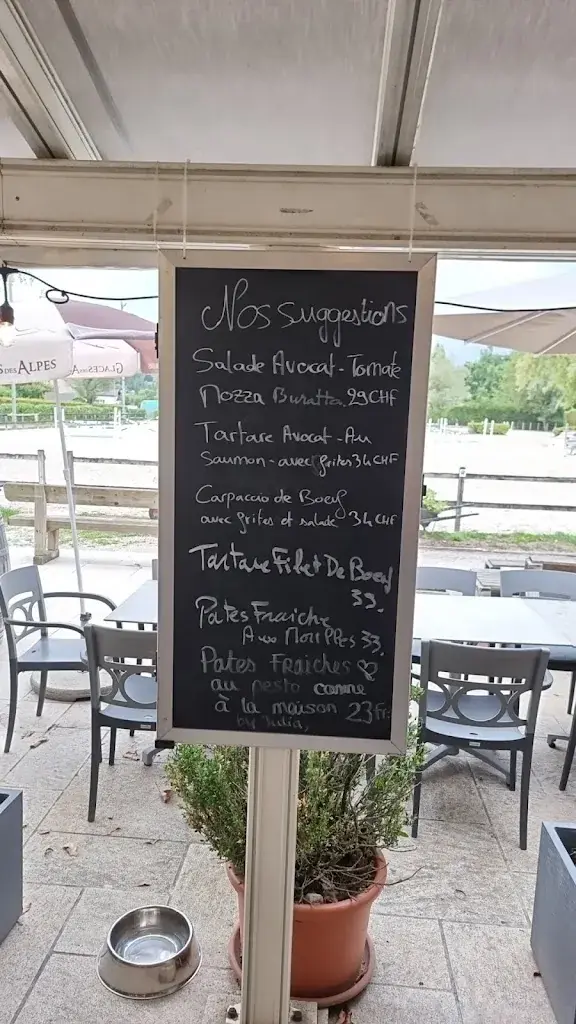 Nos suggestions
Salade Avocat - Tomate
Mozza Buratta. 29 CHF
Tartare Avocat - Au
Saumon - avec frites 34 CHF
Carpaccio de Boeuf
avec frites et salade 34 CHF
Tartare Filet De Boeuf
33.
Pates Fraiche
Aux Morilles 33.
Pates Fraiches
au pesto comme
à la maison 23 fr.
by Julia,
S DES ALPES
GLACES DES A